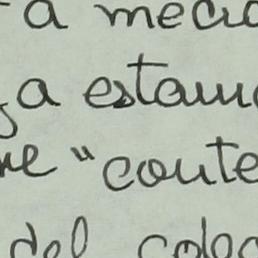 a medio
a estamo
me "conte
del coleg